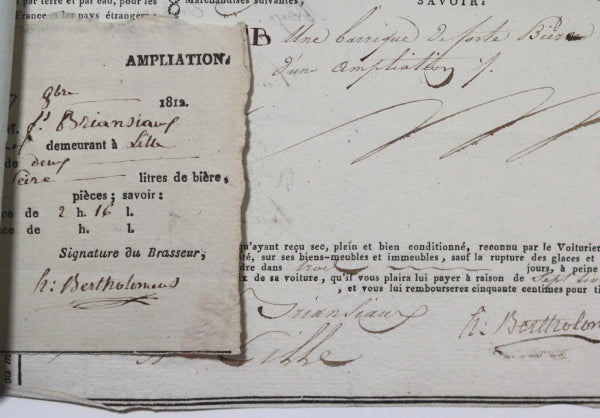 par terre et par eau, pour les
France, les pays étrangers
Marchandises suivantes,
SAVOIR:
B Une barrique de forte Bière
d'une ampliation
AMPLIATION.
9bre 1812.
M. Briansiaux
demeurant à Lille
de deux
Bière litres de bière,
pièces; savoir:
ce de 2 h. 16 l.
ce de h. l.
Signature du Brasseur,
h: Bertholomeus
qu'ayant reçu sec, plein et bien conditionné, reconnu par le Voiturier
té, sur ses biens-meubles et immeubles, sauf la rupture des glaces et
dre dans trois jours, à peine
ix de sa voiture, qu'il vous plaira lui payer à raison de sept
, et vous lui rembourserez cinquante centimes pour ti
Briansiaux
h: Bertholom
Lille
ou m